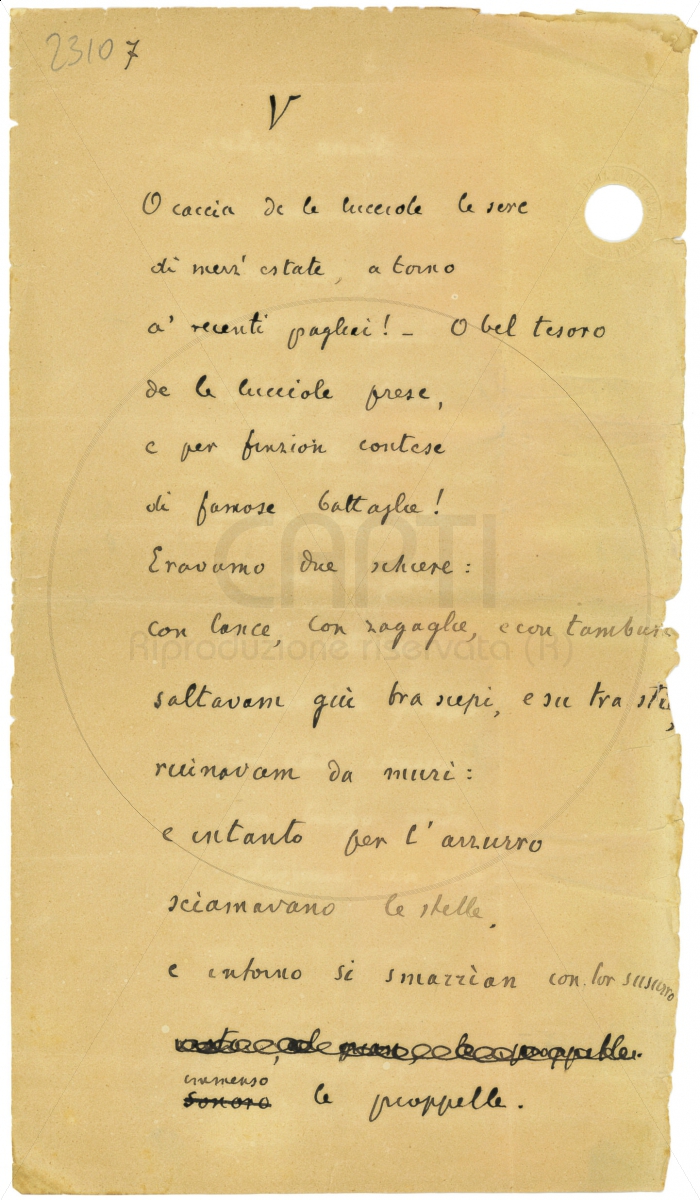 23107
V
O caccia de le lucciole le sere
di mezz' estate, a torno
a' recenti pagliai! – O bel tesoro
de le lucciole prese,
e per finzion contese
di famose battaglie!
Eravamo due schiere:
con lance, con zagaglie, e con tambur
saltavam giù tra siepi, e su tra
ruinavam da muri:
e intanto per l' azzurro
sciamavano le stelle,
e intorno si smarrian con lor susurro
immenso
sonoro le pioppelle.
CAPTI
Riproduzione riservata (R)